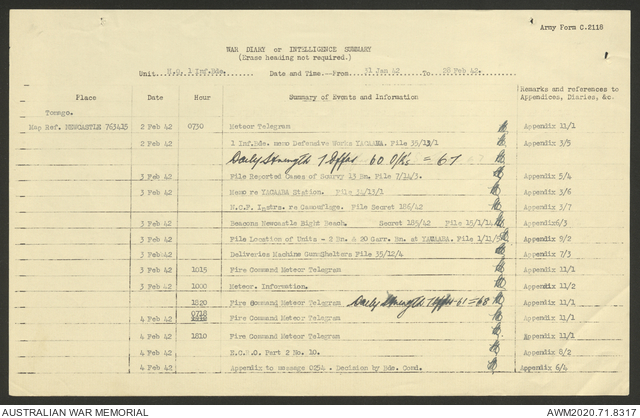 Army Form C.2118
WAR DIARY or INTELLIGENCE SUMMARY
(Erase heading not required.)
Unit H.Q. 1 Inf.Bde. Date and Time.—From 31 Jan 42 To 28 Feb 42.
Place Date Hour Summary of Events and Information Remarks and references to Appendices, Diaries, &c.
Tomago.
Map Ref. NEWCASTLE 763415 2 Feb 42 0730 Meteor Telegram Appendix 11/1
2 Feb 42 1 Inf.Bde. memo Defensive Works YACAABA. File 35/19/1 Appendix 3/5
Daily Strength 7 Offrs 60 O/Rs = 67
3 Feb 42 File Reported Cases of Scurvy 13 Bn. File 7/14/3. Appendix 5/4
3 Feb 42 Memo re YACAABA Station. File 34/13/1 Appendix 3/6
N.C.F. Instrs. re Camouflage. File Secret 186/42 Appendix 3/7
3 Feb 42 Beacons Newcastle Bight Beach. Secret 189/42 File 15/1/14 Appendix6/3
3 Feb 42 File Location of Units - 2 Bn. & 20 Garr. Bn. at YACAABA. File 1/11/5 Appendix 9/2
3 Feb 42 Deliveries Machine GunsShelters File 35/12/4 Appendix 7/3
3 Feb 42 1015 Fire Command Meteor Telegram Appendix 11/1
3 Feb 42 1000 Meteor. Information. Appendix 11/2
1820 Fire Command Meteor Telegram Daily Strength 7 Offrs 61 = 68 Appendix 11/1
4 Feb 42 0718 Fire Command Meteor Telegram Appendix 11/1
4 Feb 42 1810 Fire Command Meteor Telegram Appendix 11/1
4 Feb 42 E.C.R.O. Part 2 No. 10. Appendix 8/2
4 Feb 42 Appendix to message 0254 . Decision by Bde. Comd. Appendix 6/4
AUSTRALIAN WAR MEMORIAL AWM2020.71.8317